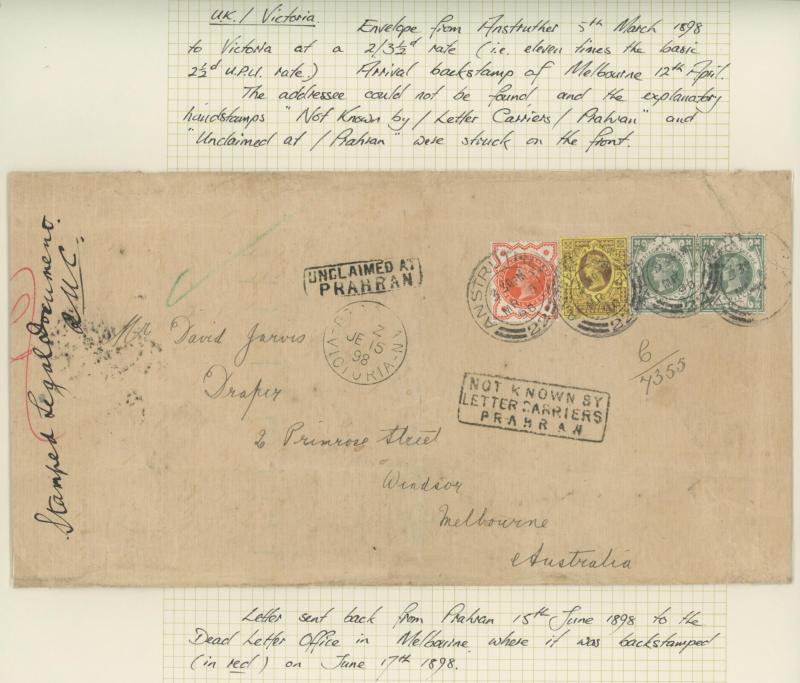 U.K. / Victoria. Envelope from Anstruther 5th March 1898
to Victoria at a 2/3½d rate (i.e. eleven times the basic
2½d U.P.U. rate.) Arrival backstamp of Melbourne 12th April.
The addressee could not be found and the explanatory
handstamps "Not Known by / Letter Carriers / Prahran" and
"Unclaimed at / Prahran" were struck on the front.
Stamped Legal Document.
UNCLAIMED AT
PRAHRAN
ANSTRUTHER
MR
98
22
2
JE 15
98
VICTORIA
Mr David Jarvis
Draper
2 Primrose Street
Windsor
Melbourne
Australia
6/7355
NOT KNOWN BY
LETTER CARRIERS
PRAHRAN
Letter sent back from Prahran 15th June 1898 to the
Dead Letter Office in Melbourne where it was backstamped
(in red) on June 17th 1898.